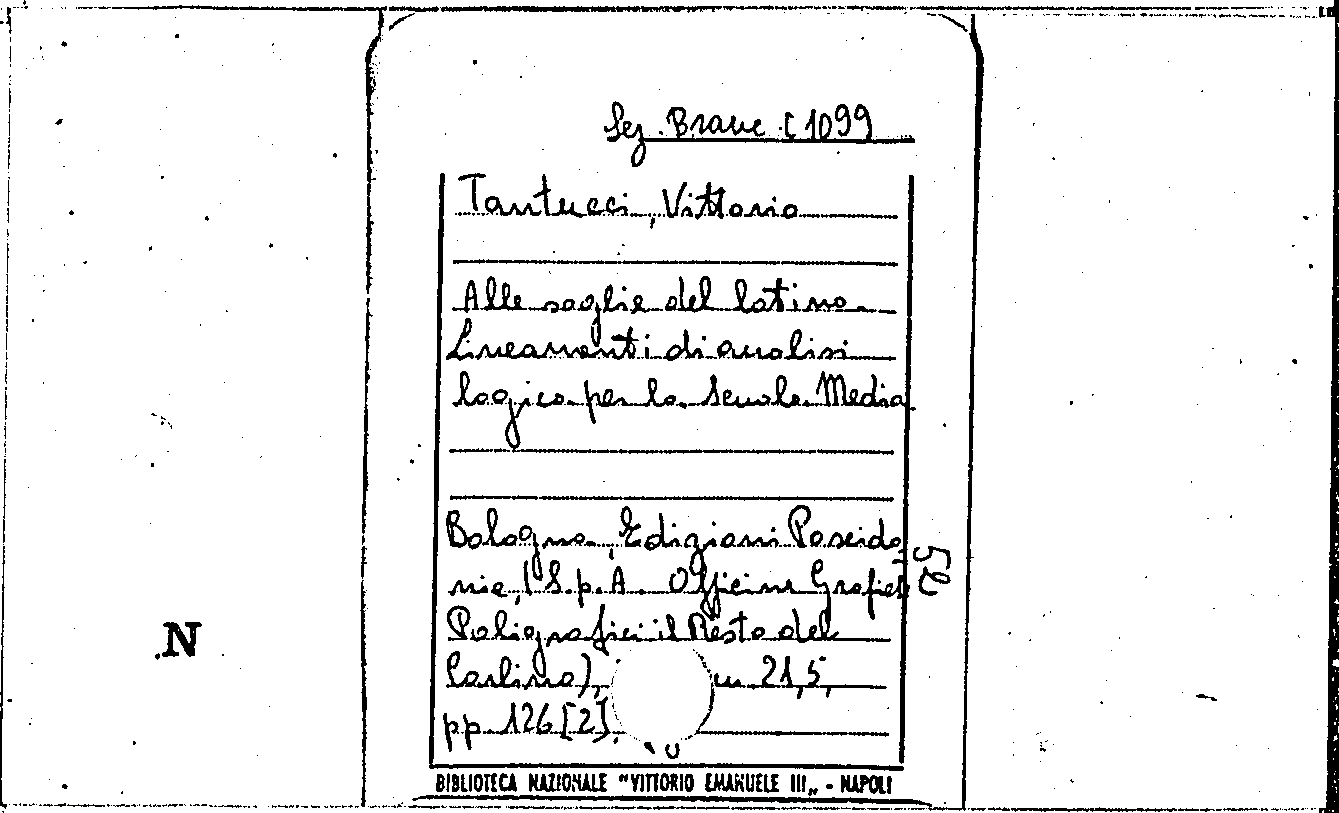 Sez. Brauc. C 1099
Tantucci, Vittorio
Alle soglie del latino.
Lineamenti di analisi
logica per la Scuola Media.
Bologna, Edizioni Poseido
nia, (S.p.A. Officine Grafiche
Poligrafici il Resto del
Carlino), 21,5,
pp. 126 [2].
52
N
BIBLIOTECA NAZIONALE "VITTORIO EMANUELE III„ - NAPOLI